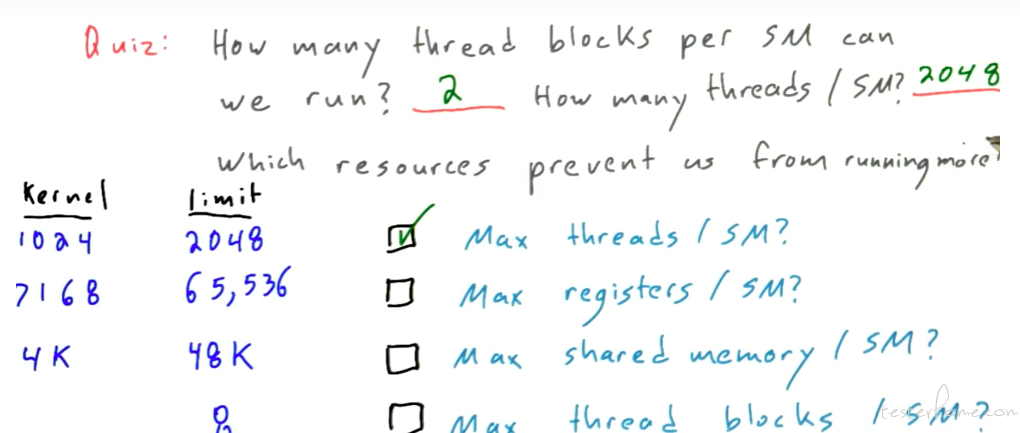 Quiz: How many thread blocks per SM can
we run? 2 How many threads / SM? 2048
Which resources prevent us from running more?
Kernel limit
1024 2048 Max threads / SM?
7168 65,536 Max registers / SM?
4K 48K Max shared memory / SM?
8 Max thread blocks / SM?
testerhome.com